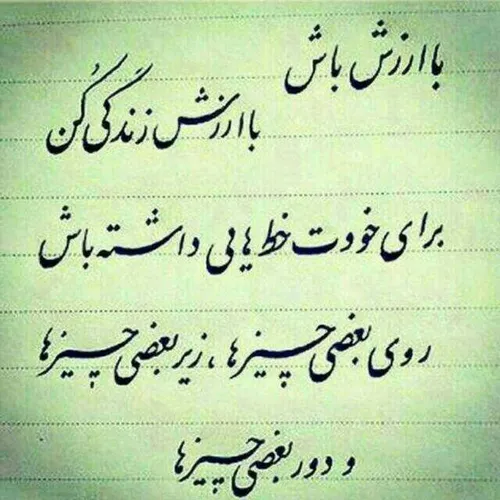 با ارزش باش
با ارزش زندگی کُن
برای خودت خط هایی داشته باش
روی بعضی چیزها ، زیر بعضی چیزها
و دور بعضی چیزها